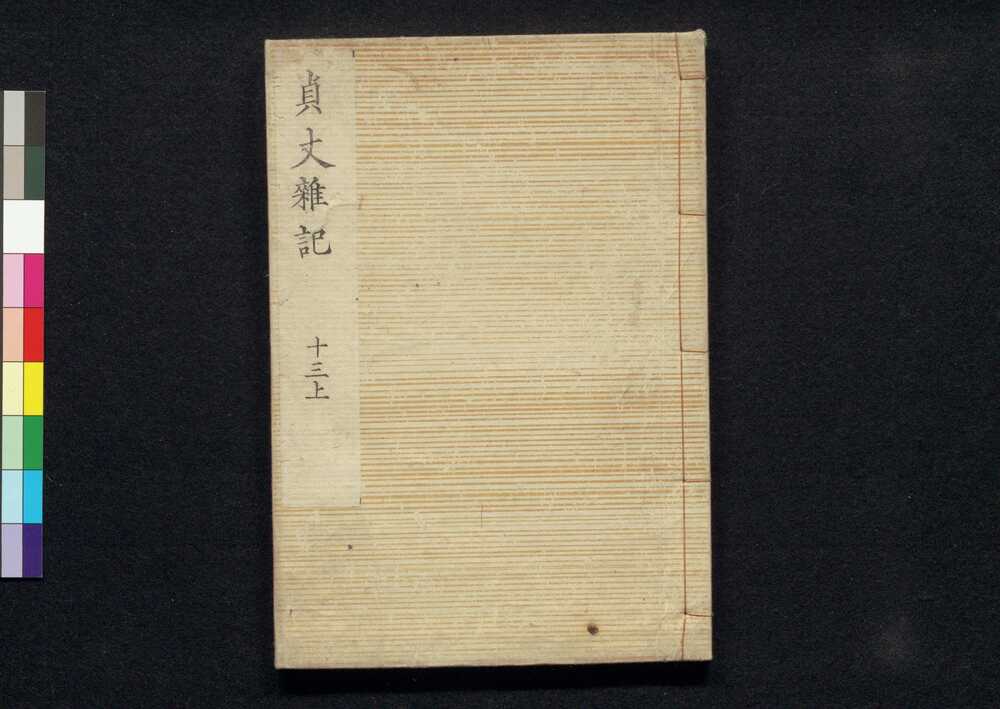 貞丈雜記
十三上